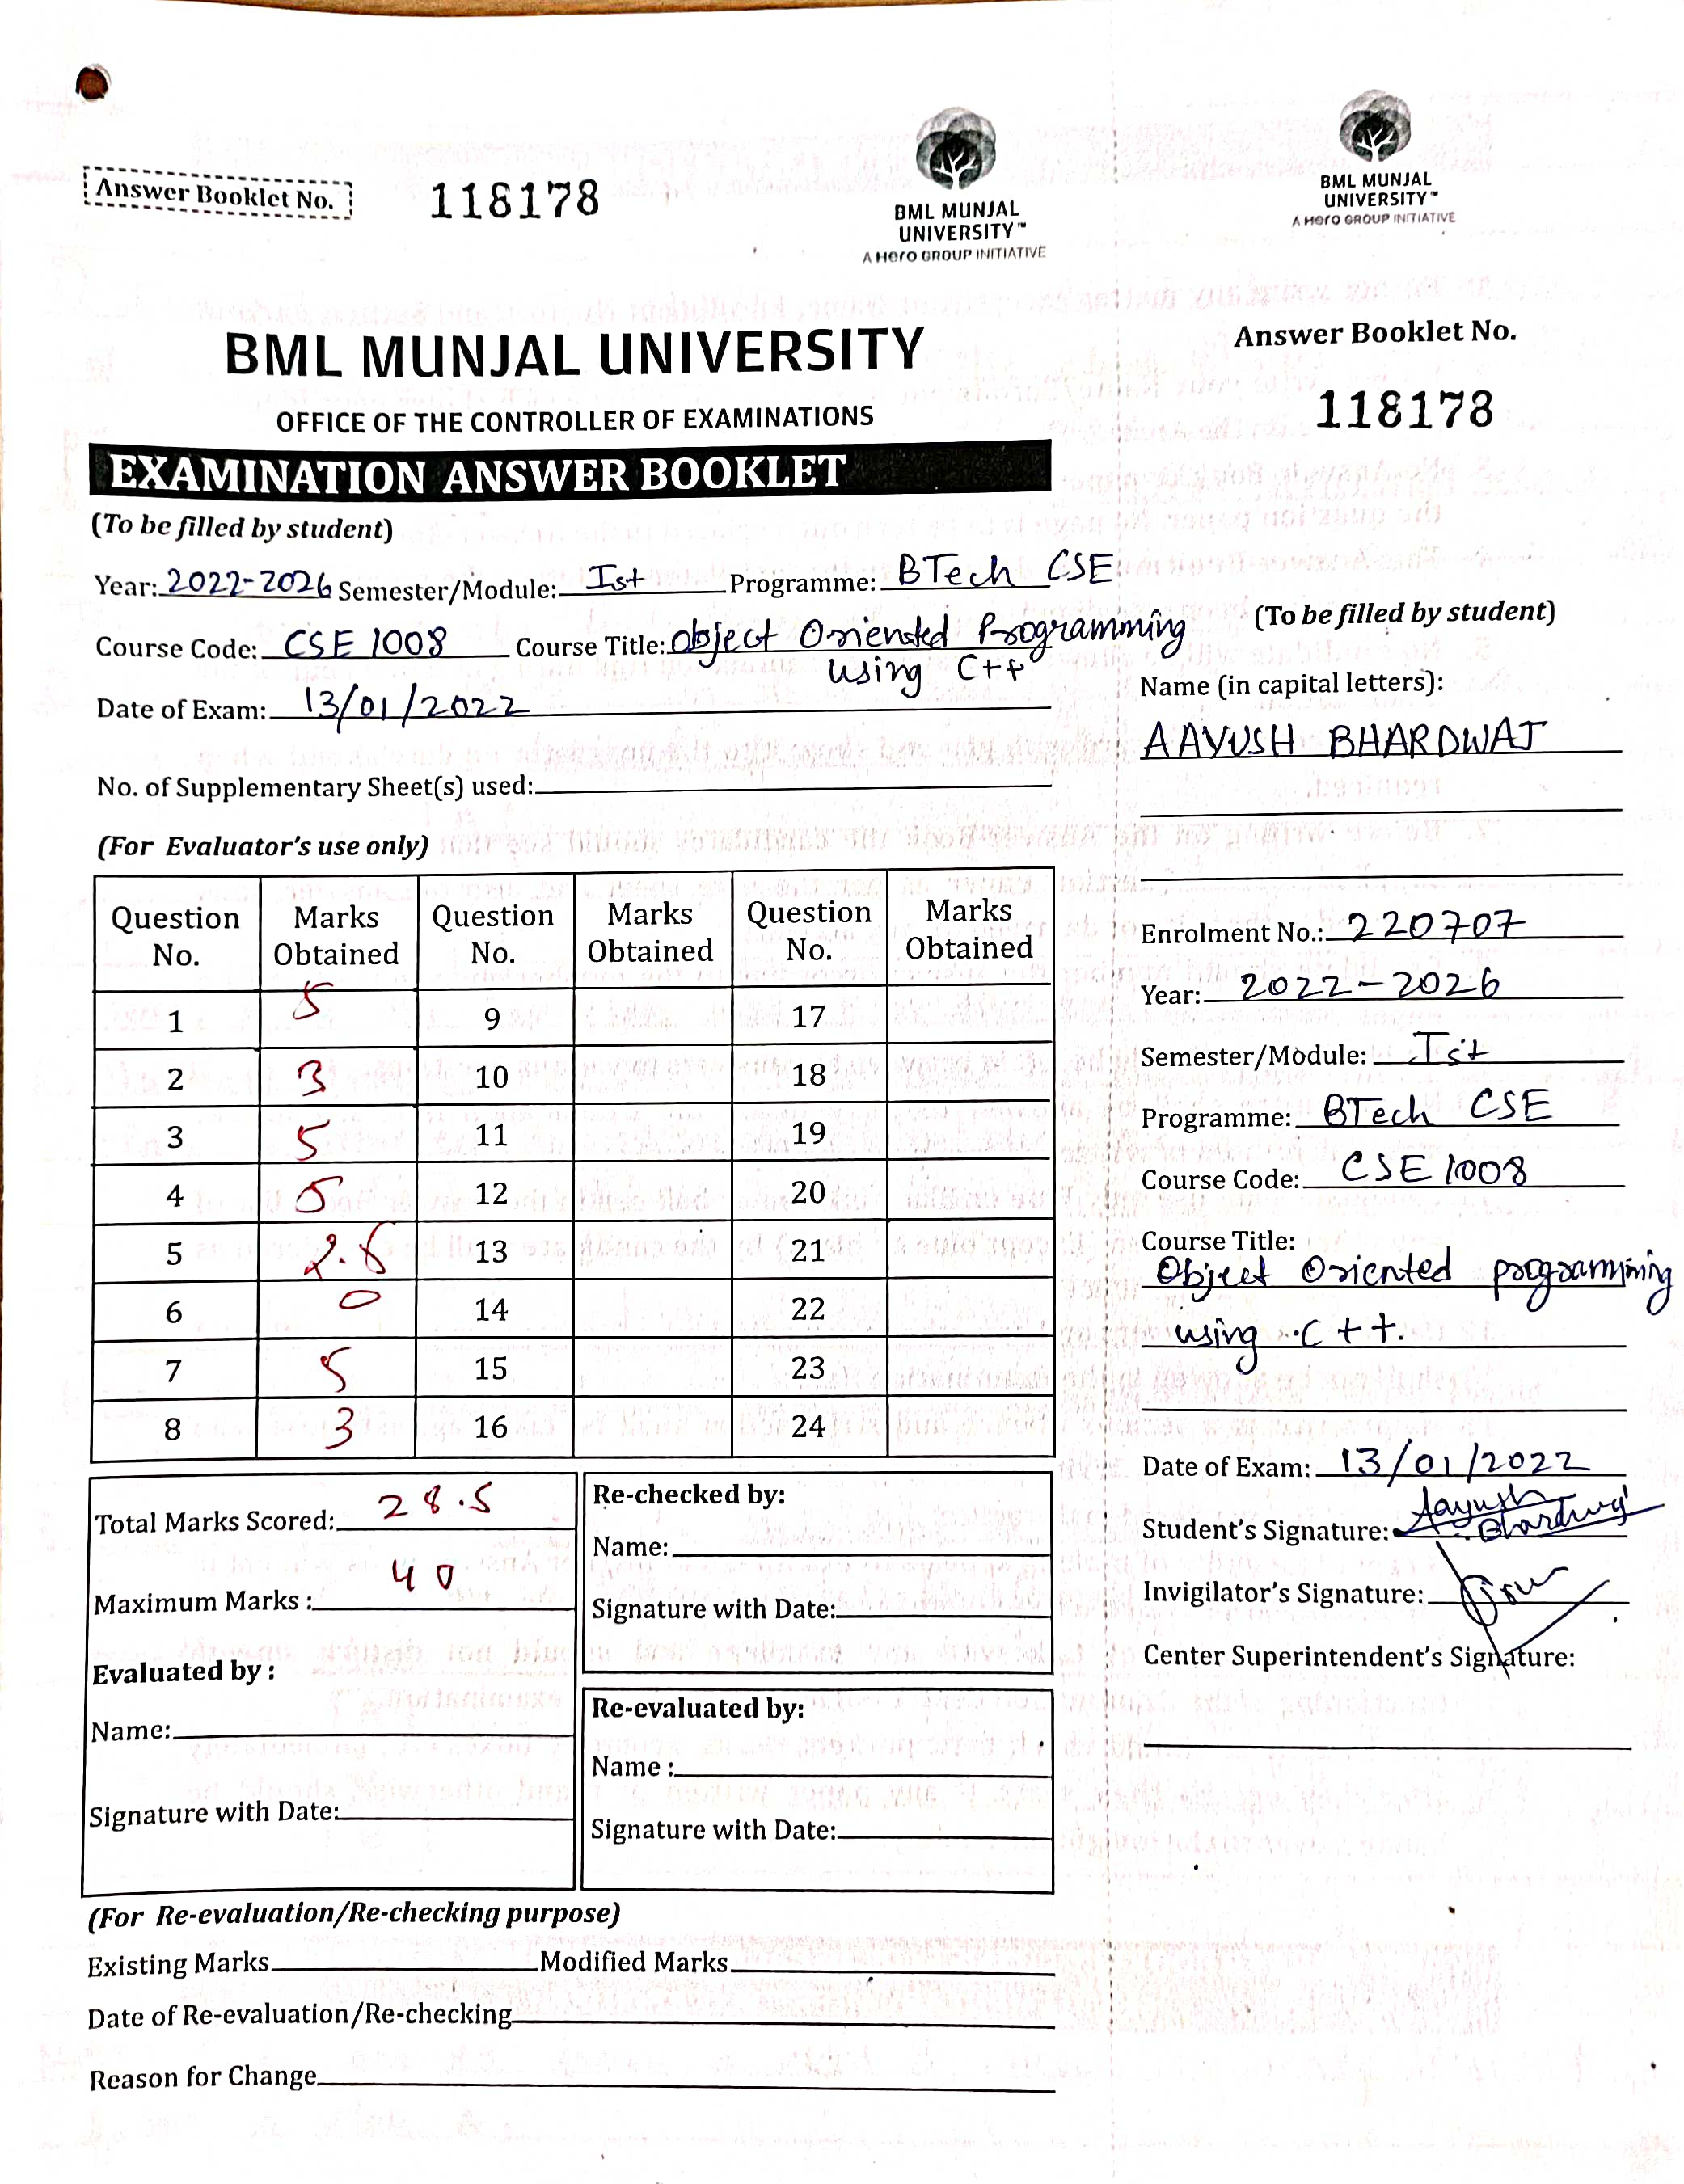 Answer Booklet No. 118178
BML MUNJAL
UNIVERSITY™
A Hero GROUP INITIATIVE
BML MUNJAL UNIVERSITY
OFFICE OF THE CONTROLLER OF EXAMINATIONS
EXAMINATION ANSWER BOOKLET
(To be filled by student)
Year: 2022-2026 Semester/Module: Ist Programme: BTech CSE
Course Code: CSE 1008 Course Title: Object Oriented Programming
using C++
Date of Exam: 13/01/2022
No. of Supplementary Sheet(s) used:
(For Evaluator's use only)
Question No. Marks Obtained Question No. Marks Obtained Question No. Marks Obtained
1 5 9 17
2 3 10 18
3 5 11 19
4 5 12 20
5 2.5 13 21
6 0 14 22
7 5 15 23
8 3 16 24
Total Marks Scored: 28.5
Maximum Marks : 40
Evaluated by :
Name:
Signature with Date:
Re-checked by:
Name:
Signature with Date:
Re-evaluated by:
Name :
Signature with Date:
(For Re-evaluation/Re-checking purpose)
Existing Marks Modified Marks
Date of Re-evaluation/Re-checking
Reason for Change
BML MUNJAL
UNIVERSITY™
A Hero GROUP INITIATIVE
Answer Booklet No.
118178
(To be filled by student)
Name (in capital letters):
AAYUSH BHARDWAJ
Enrolment No.: 220707
Year: 2022-2026
Semester/Module: Ist
Programme: BTech CSE
Course Code: CSE 1008
Course Title:
Object Oriented programming
using C++.
Date of Exam: 13/01/2022
Student's Signature: Aayush
Bhardwaj
Invigilator's Signature:
Center Superintendent's Signature: